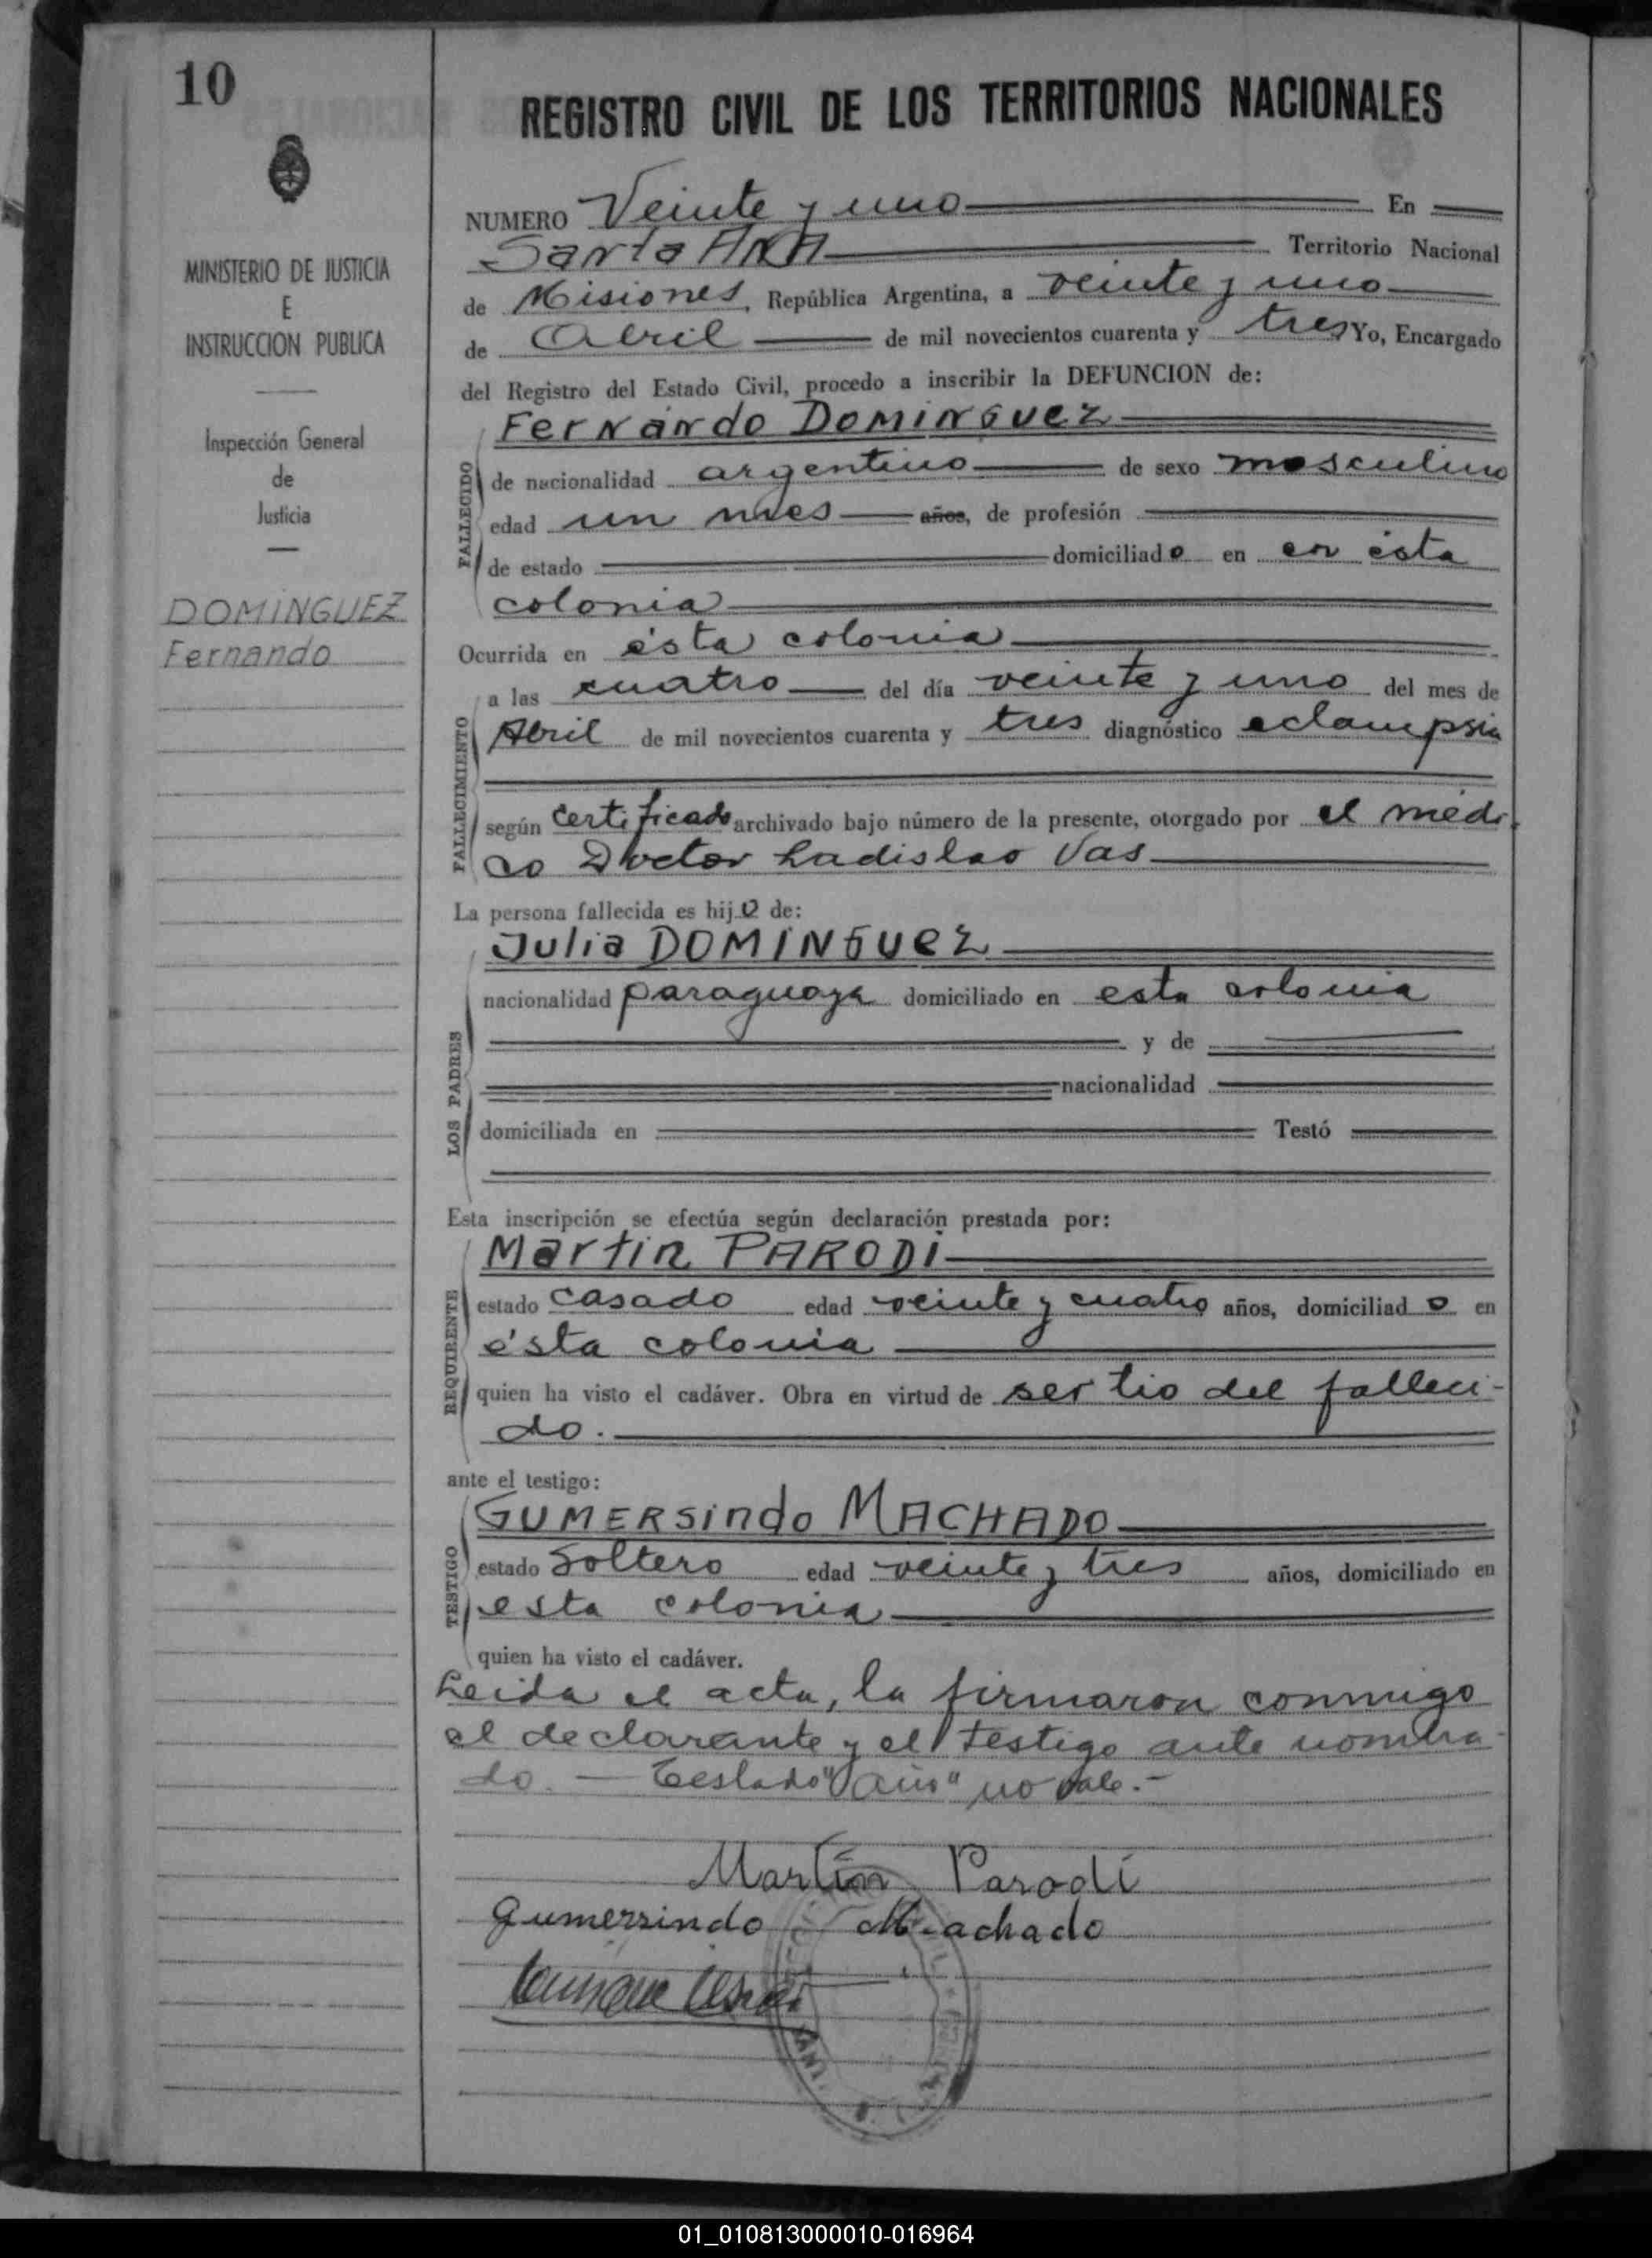 10
MINISTERIO DE JUSTICIA
E
INSTRUCCION PUBLICA
Inspección General
de
Justicia
DOMINGUEZ
Fernando
REGISTRO CIVIL DE LOS TERRITORIOS NACIONALES
NUMERO Veinte y uno En
Santa Ana Territorio Nacional
de Misiones, República Argentina, a veinte y uno
de Abril de mil novecientos cuarenta y tres Yo, Encargado
del Registro del Estado Civil, procedo a inscribir la DEFUNCION de:
Fernando Dominguez
FALLECIDO
de nacionalidad argentino de sexo masculino
edad un mes años, de profesión
de estado domiciliado en en ésta
colonia
Ocurrida en ésta colonia
FALLECIMIENTO
a las cuatro del día veinte y uno del mes de
Abril de mil novecientos cuarenta y tres diagnóstico eclampsia
según certificado archivado bajo número de la presente, otorgado por el médi-
co Doctor Ladislao Vas
La persona fallecida es hijo de:
Julia DOMINGUEZ
LOS PADRES
nacionalidad paraguaya domiciliado en esta colonia
y de
nacionalidad
domiciliada en Testó
Esta inscripción se efectúa según declaración prestada por:
Martin PARODI
REQUIRENTE
estado casado edad veinte y cuatro años, domiciliado en
ésta colonia
quien ha visto el cadáver. Obra en virtud de ser tio del falleci-
do.
ante el testigo:
GUMERSindo MACHADO
TESTIGO
estado Soltero edad veinte y tres años, domiciliado en
esta colonia
quien ha visto el cadáver.
Leida el acta, la firmaron conmigo
el declarante y el testigo ante nombra-
do. — Testado "año" no vale.-
Martin Parodi
Gumersindo Machado
01_010813000010-016964